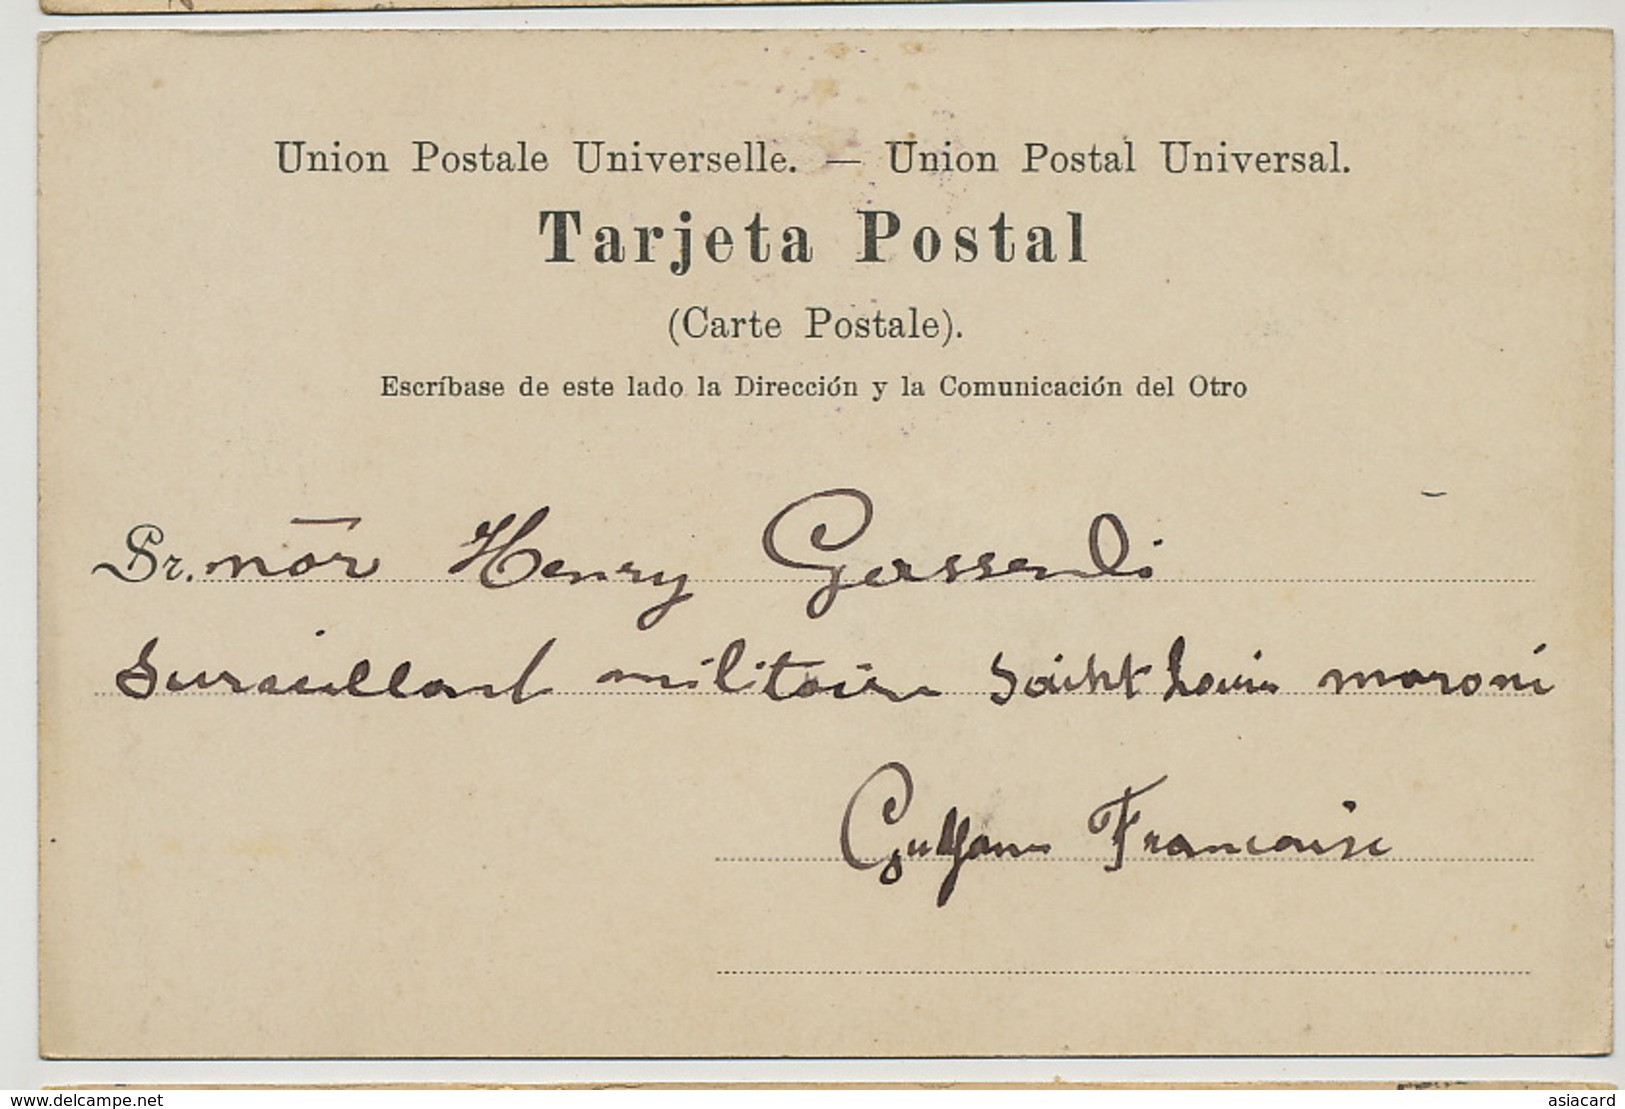 Union Postale Universelle. — Union Postal Universal.
Tarjeta Postal
(Carte Postale).
Escríbase de este lado la Dirección y la Comunicación del Otro
Sr. nōr Henry Gassendi
Surveillant militaire Saint Louis maroni
Guyane Francaise
www.delcampe.net
asiacard